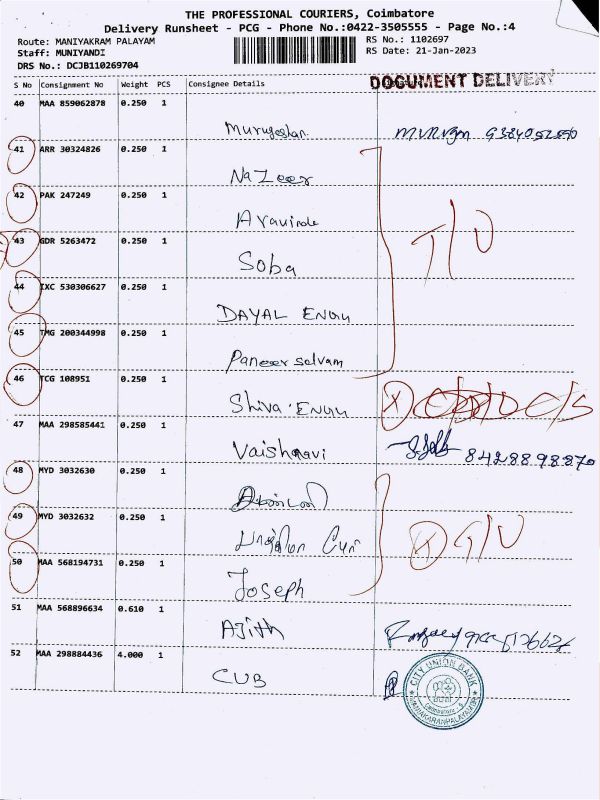 THE PROFESSIONAL COURIERS, Coimbatore
Delivery Runsheet - PCG - Phone No.:0422-3505555 - Page No.:4
Route: MANIYAKRAM PALAYAM
RS No.: 1102697
Staff: MUNIYANDI
RS Date: 21-Jan-2023
DRS No.: DCJB110269704
DOCUMENT DELIVERY
S No Consignment No Weight PCS Consignee Details
40 MAA 859062878 0.250 1
Murugeshan
41 ARR 30324826 0.250 1
Nazeer
42 PAK 247249 0.250 1
Aravinde
T/U
43 GDR 5263472 0.250 1
Soba
44 IXC 530306627 0.250 1
DAYAL ENGU
45 TMG 200344998 0.250 1
Paneer selvam
46 TCG 108951 0.250 1
Shiva ENGU
X C/S
47 MAA 298585441 0.250 1
Vaishnavi 8428898870
48 MYD 3032630 0.250 1
49 MYD 3032632 0.250 1
X T/U
50 MAA 568194731 0.250 1
Joseph
51 MAA 568896634 0.610 1
Ajith
52 MAA 298884436 4.000 1
CUB
CITY UNION BANK